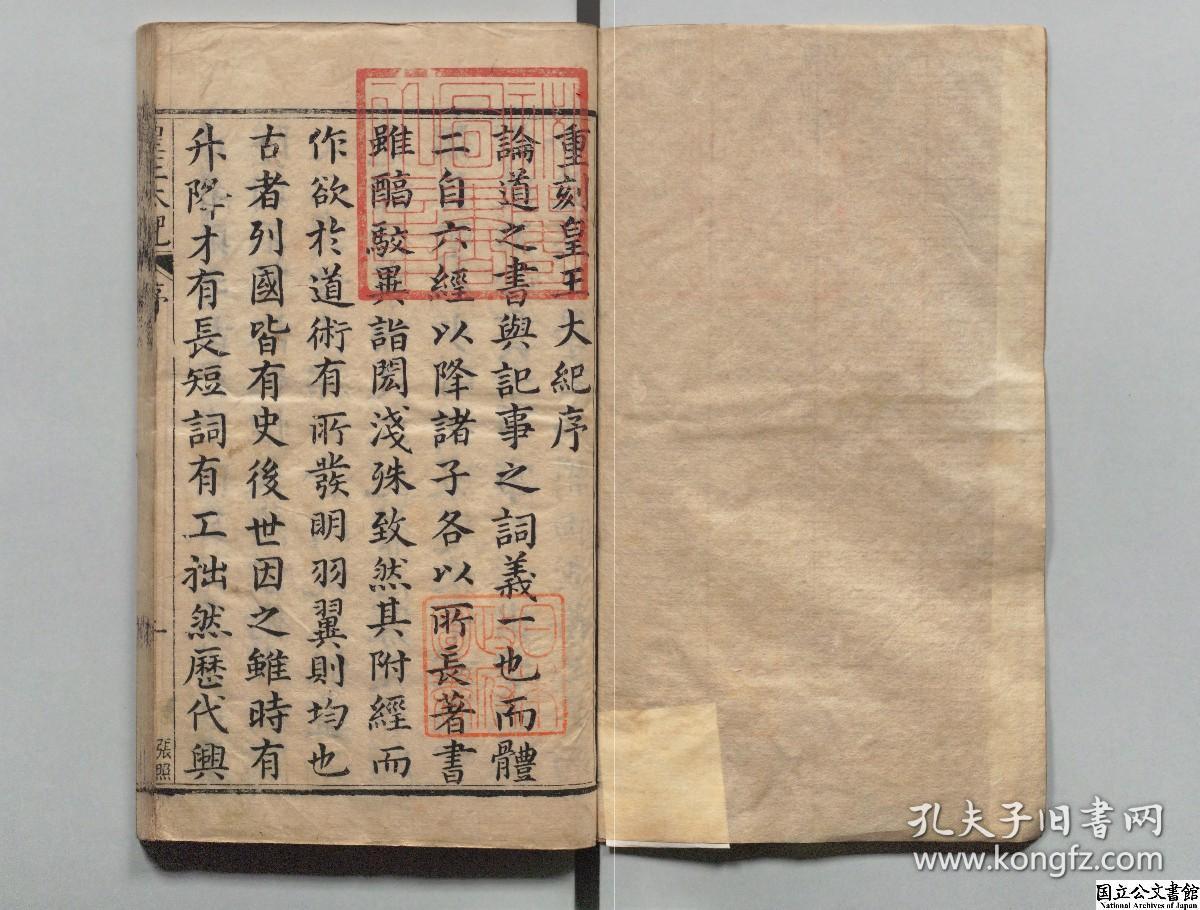 重刻皇王大紀序
論道之書與記事之詞義一也而體
二自六經以降諸子各以所長著書
雖醕駁異詣閎淺殊致然其附經而
作欲於道術有所發明羽翼則均也
古者列國皆有史後世因之雖時有
升降才有長短詞有工拙然歷代興
皇王大紀
序
一
張照
孔夫子旧书网
www.kongfz.com
国立公文書館
National Archives of Japan